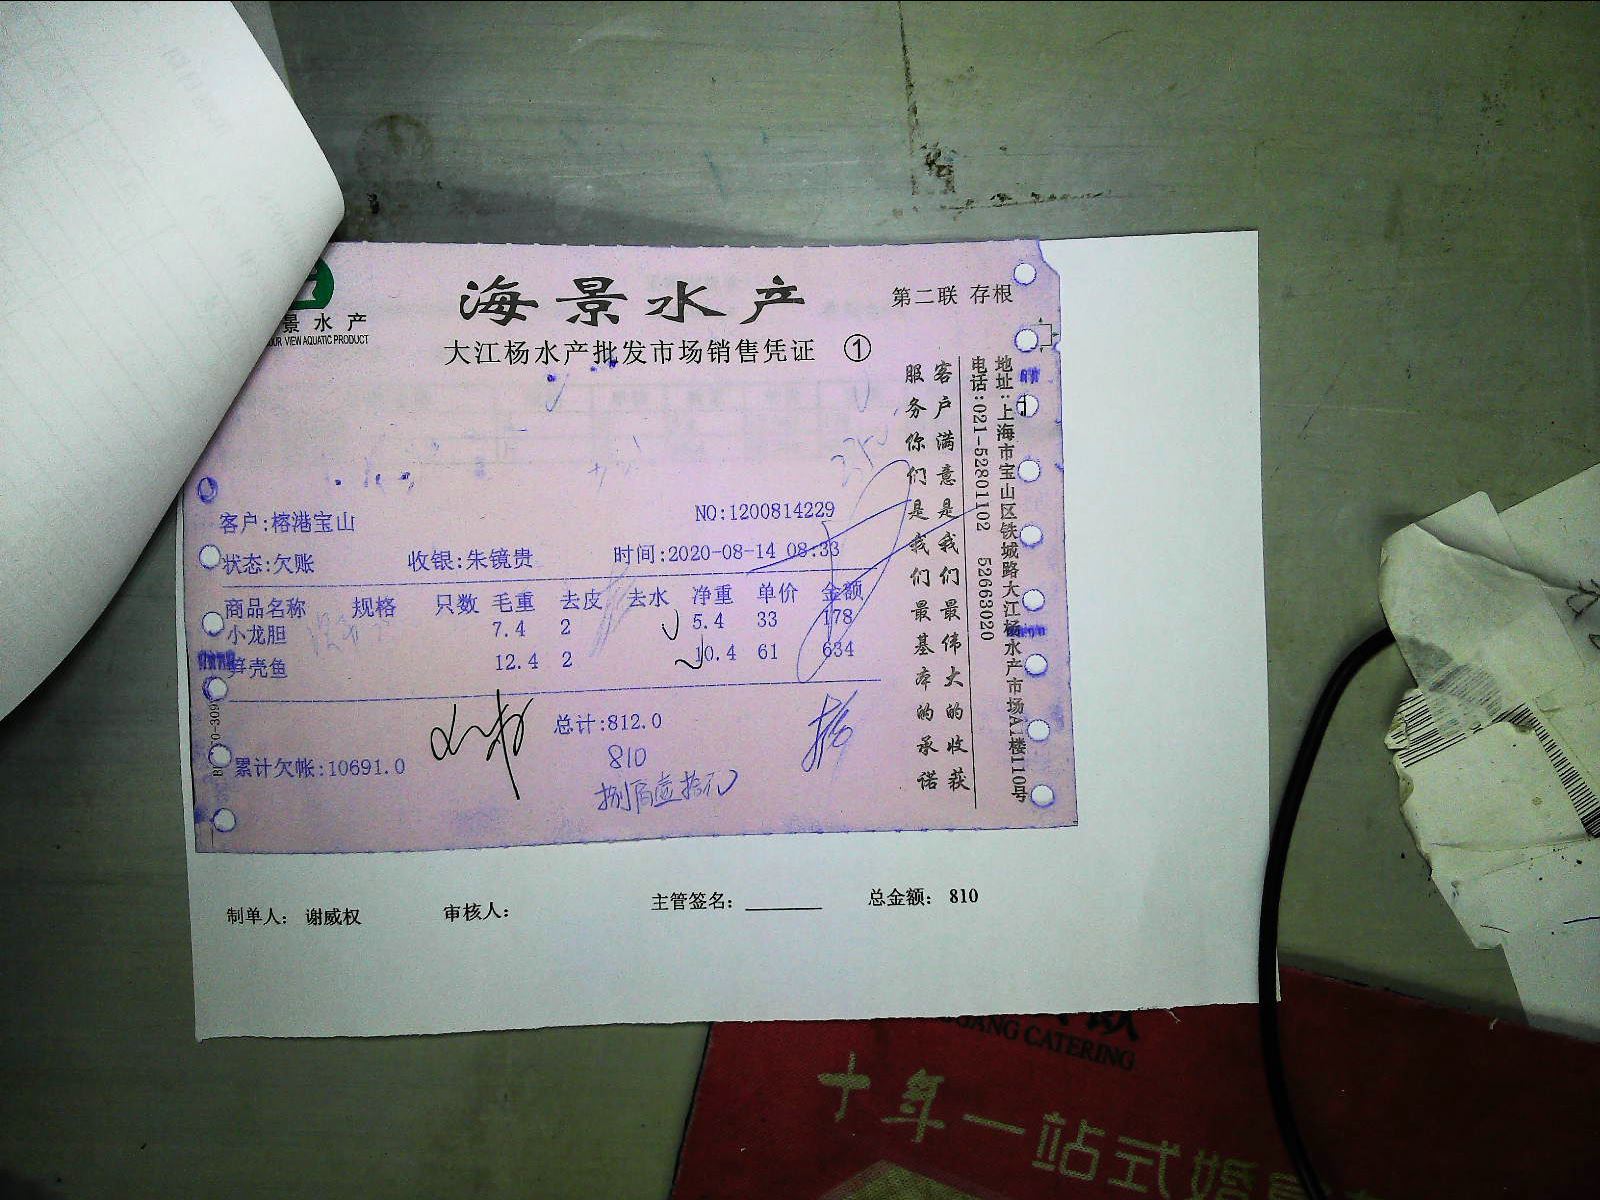 海景水产
第二联 存根
景水产
OUR VIEW AQUATIC PRODUCT
大江杨水产批发市场销售凭证 ①
客户:榕港宝山
NO:1200814229
状态:欠账 收银:朱镜贵 时间:2020-08-14 08:33
商品名称 规格 只数 毛重 去皮 去水 净重 单价 金额
小龙胆 7.4 2 5.4 33 178
笋壳鱼 12.4 2 10.4 61 634
总计:812.0
累计欠帐:10691.0
810
捌佰壹拾元
客户满意是我们最伟大的收获
服务你们是我们最基本的承诺
地址:上海市宝山区铁城路大江杨水产市场A1楼110号
电话:021-52801102 52663020
制单人: 谢威权 审核人: 主管签名: 总金额: 810
GANG CATERING
十年一站式